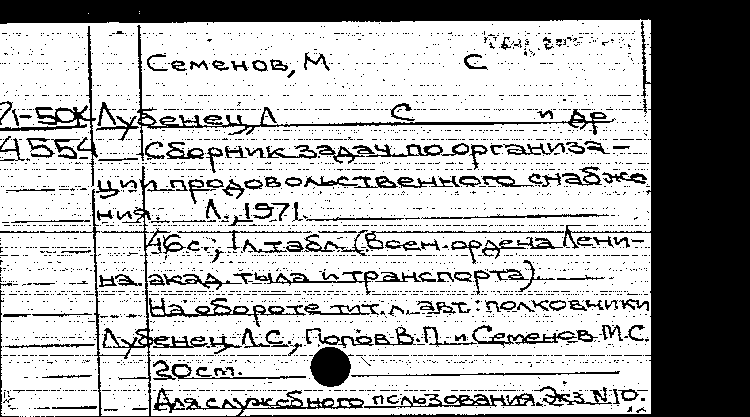 Семенов, М С
71-50К Лубенец, Л С и др
4554 Сборник задач по организа-
ции продовольственного снабже
ния. Л., 1971.
46с.; 1л.табл. (Воен. ордена Лени-
на акад. тыла и транспорта)
На обороте тит.л. авт.: полковники
Лубенец Л.С., Попов В.П. и Семенов М.С.
20cm.
Для служебного пользования. Экз. N10.